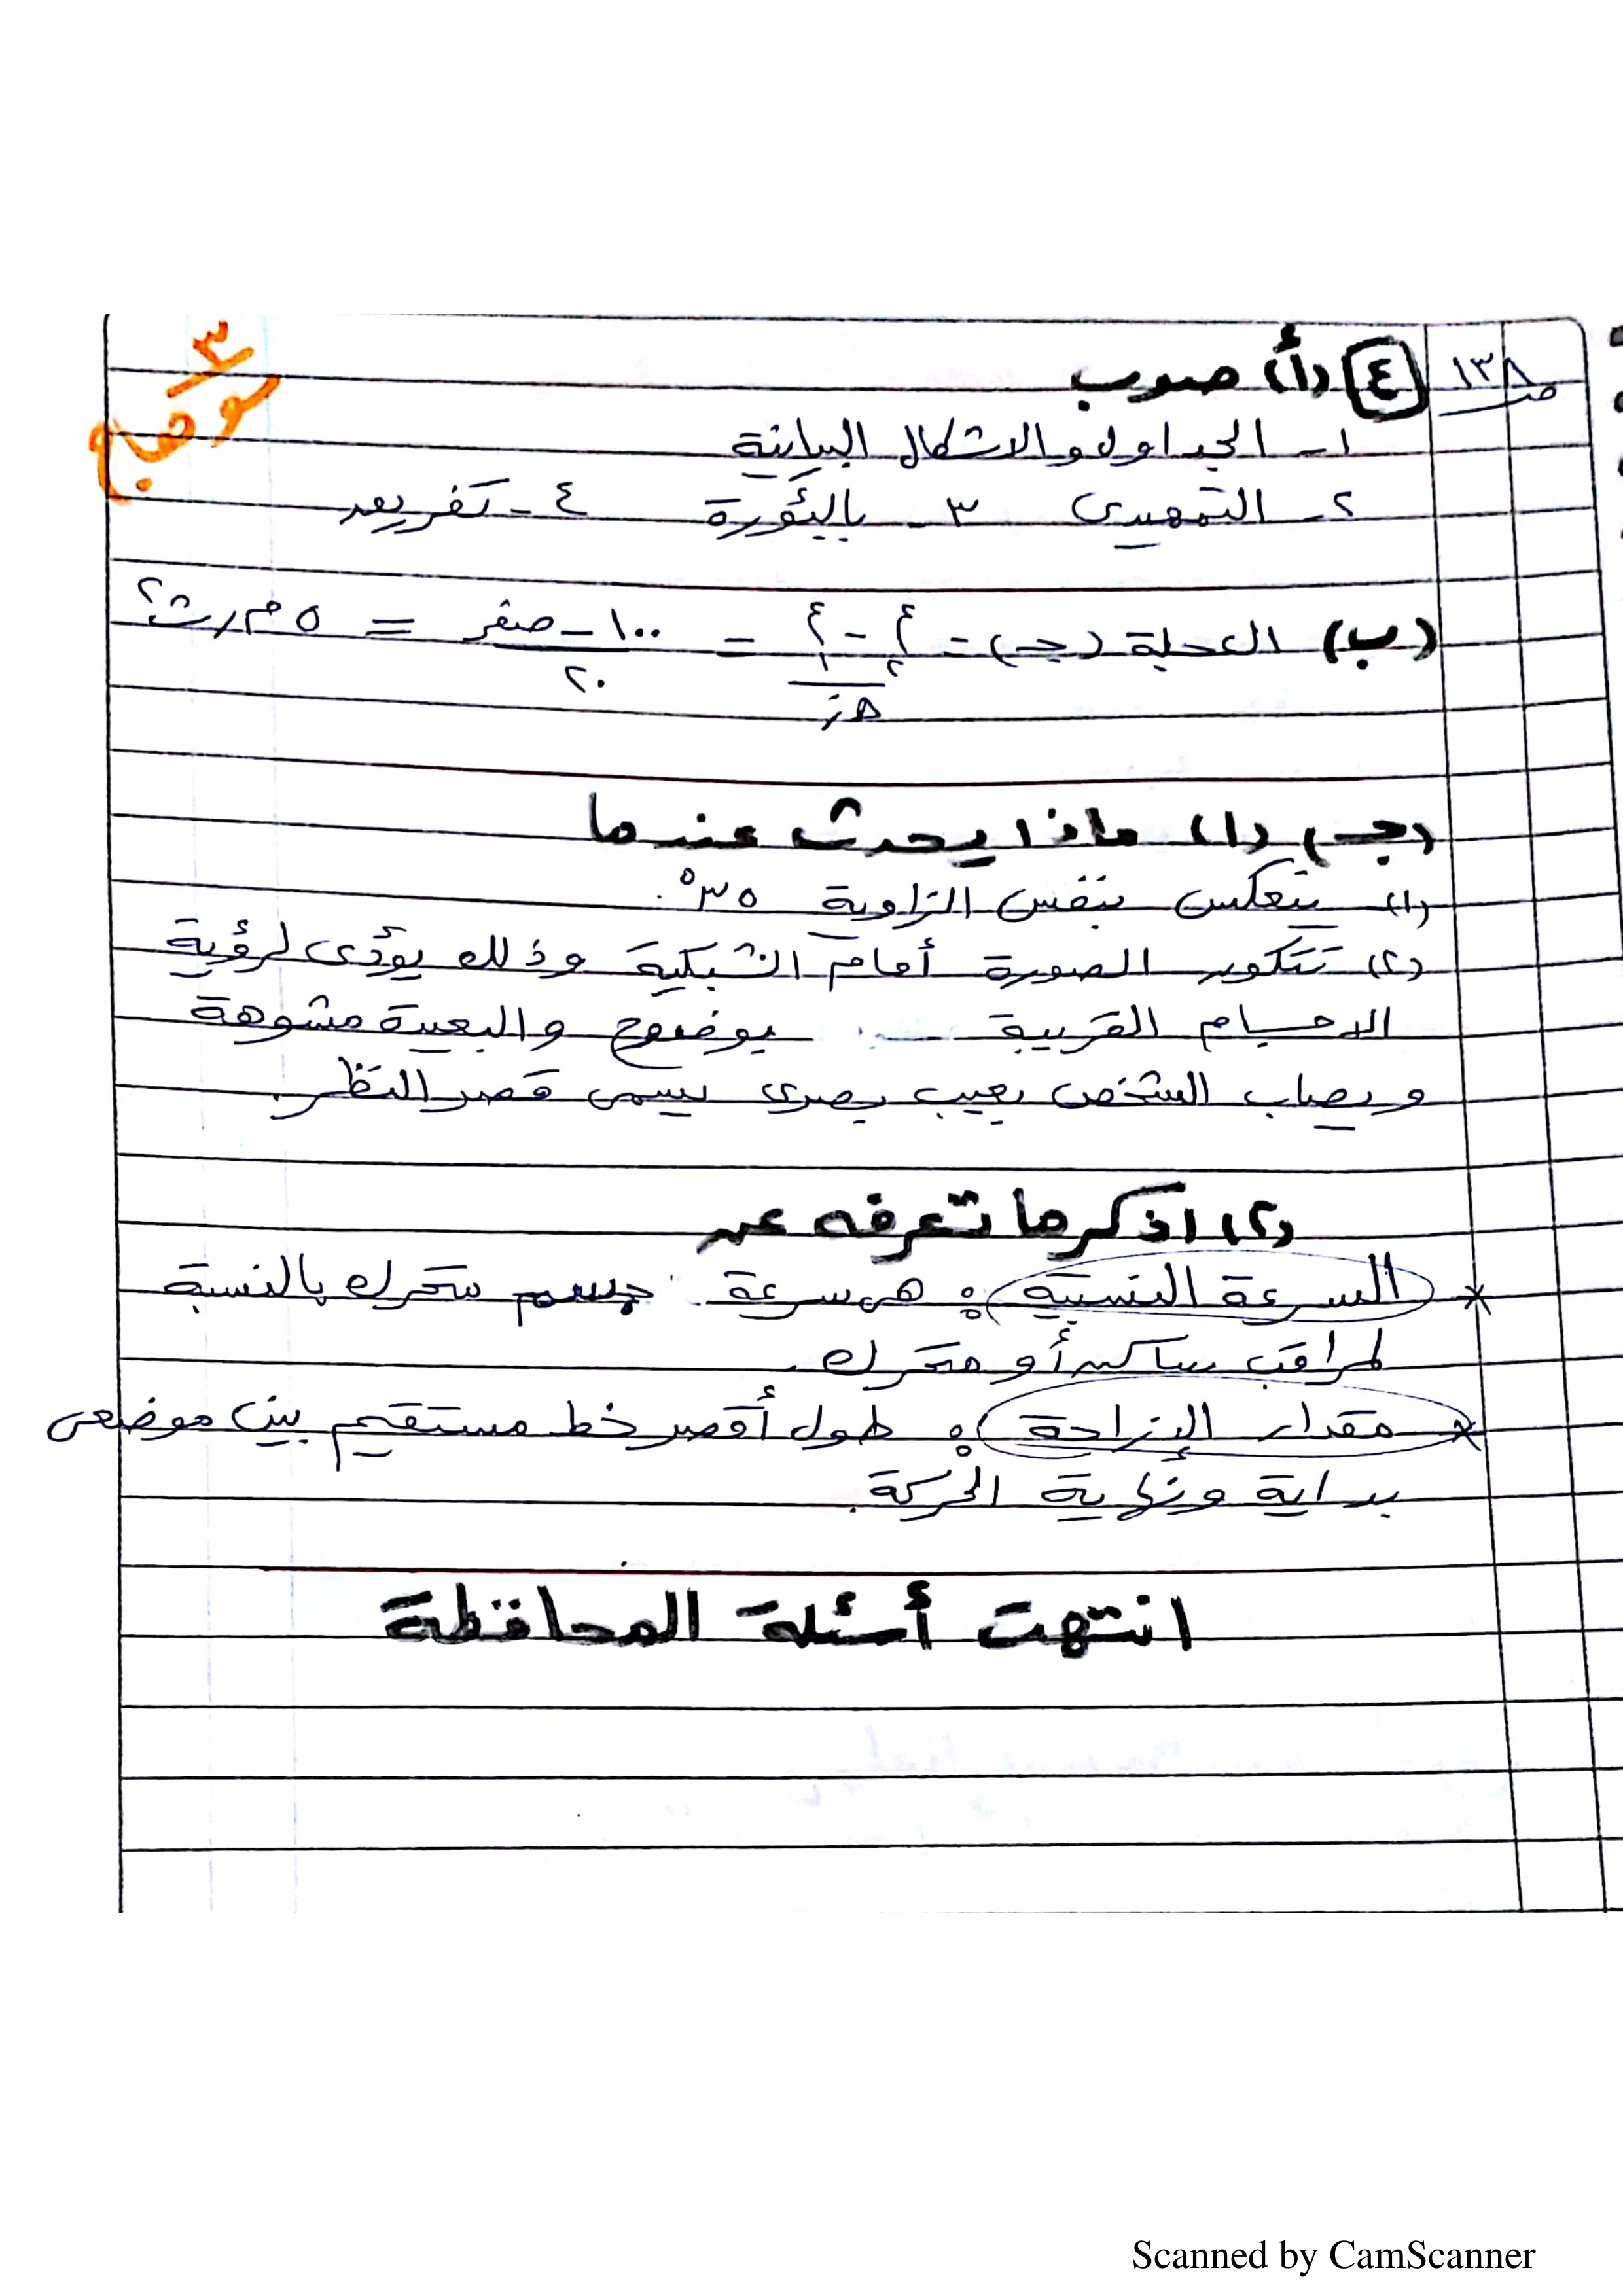 ص ١٣٨
٤ (أ) صوب
١- الجداول والاشكال البيانية
٢- التمهيدى ٣- بالبؤرة ٤- تفريعه
(ب) العجلة (جـ) = ع٢ - ع١ / Δز = ١٠٠ - صفر / ٢٠ = ٥ م/ث٢
(جـ) (١) ماذا يحدث عندما
(١) ينعكس بنفس الزاوية ٣٥°.
(٢) تتكون الصورة أمام الشبكية وذلك يؤدى لرؤية
الاجسام القريبة بوضوح والبعيدة مشوهة
ويصاب الشخص بعيب بصرى يسمى قصر النظر.
(٢) اذكر ما تعرفه عن
* السرعة النسبية : هى سرعة جسم متحرك بالنسبة
لمراقب ساكن أو متحرك.
* مقدار الإزاحة : طول أقصر خط مستقيم بين موضعى
بداية ونهاية الحركة.
انتهت أسئلة المحافظة
Scanned by CamScanner